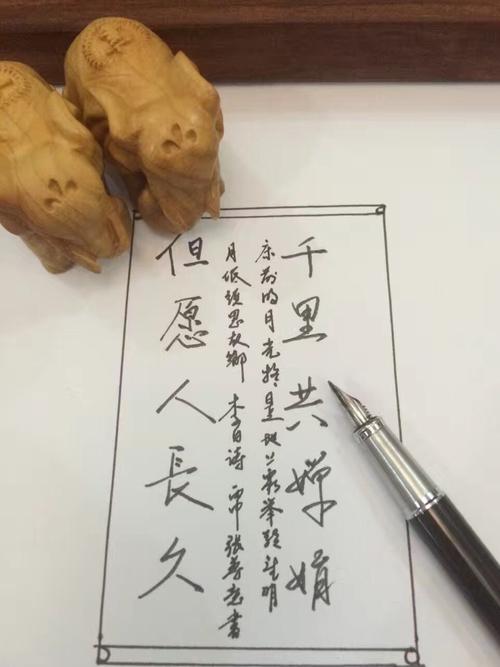 千里共嬋娟
床前明月光疑是地上霜举頭望明
月低頭思故鄉 李白诗 张书
但愿人長久